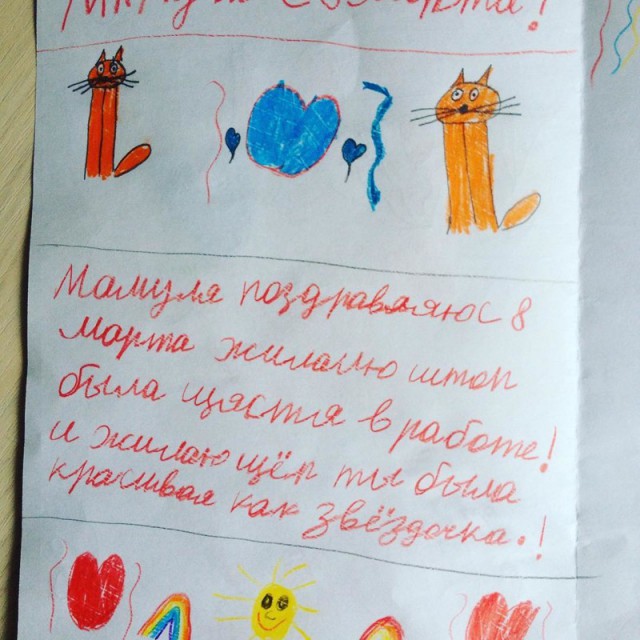 Мамуля с 8 марта!
Мамуля поздравляюс 8
марта жилаюю штоп
была щястя в работе!
и жилаю щёп ты была
красивая как звёздочка.!